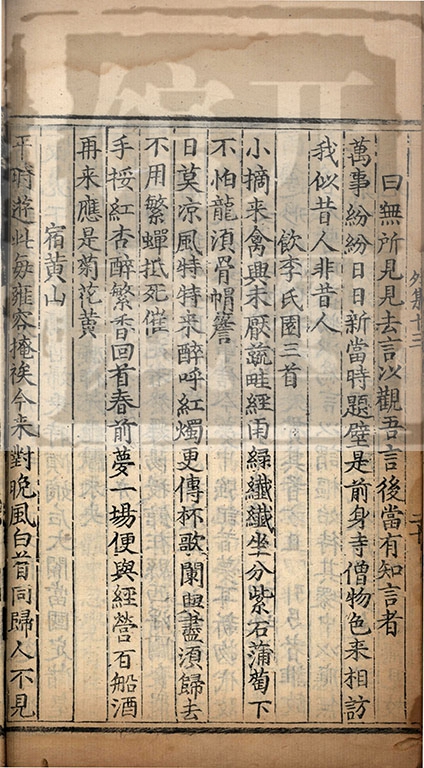 外集十三
二十
曰無所見見去言以觀吾言後當有知言者
萬事紛紛日日新當時題壁是前身寺僧物色来相訪
我似昔人非昔人
飲李氏園三首
小摘来禽興未厭蔬畦經雨綠纖纖坐分紫石蒲萄下
不怕龍湏骨㡌簷
日莫凉風特特来醉呼紅燭更傳杯歌闌興盡須歸去
不用繁蟬抵死催
手挼紅杏醉繁香回首春前夢一場便與經營百船酒
再来應是菊花黄
宿黄山
平時遊此每雍容掩袂今来對晩風白首同歸人不見